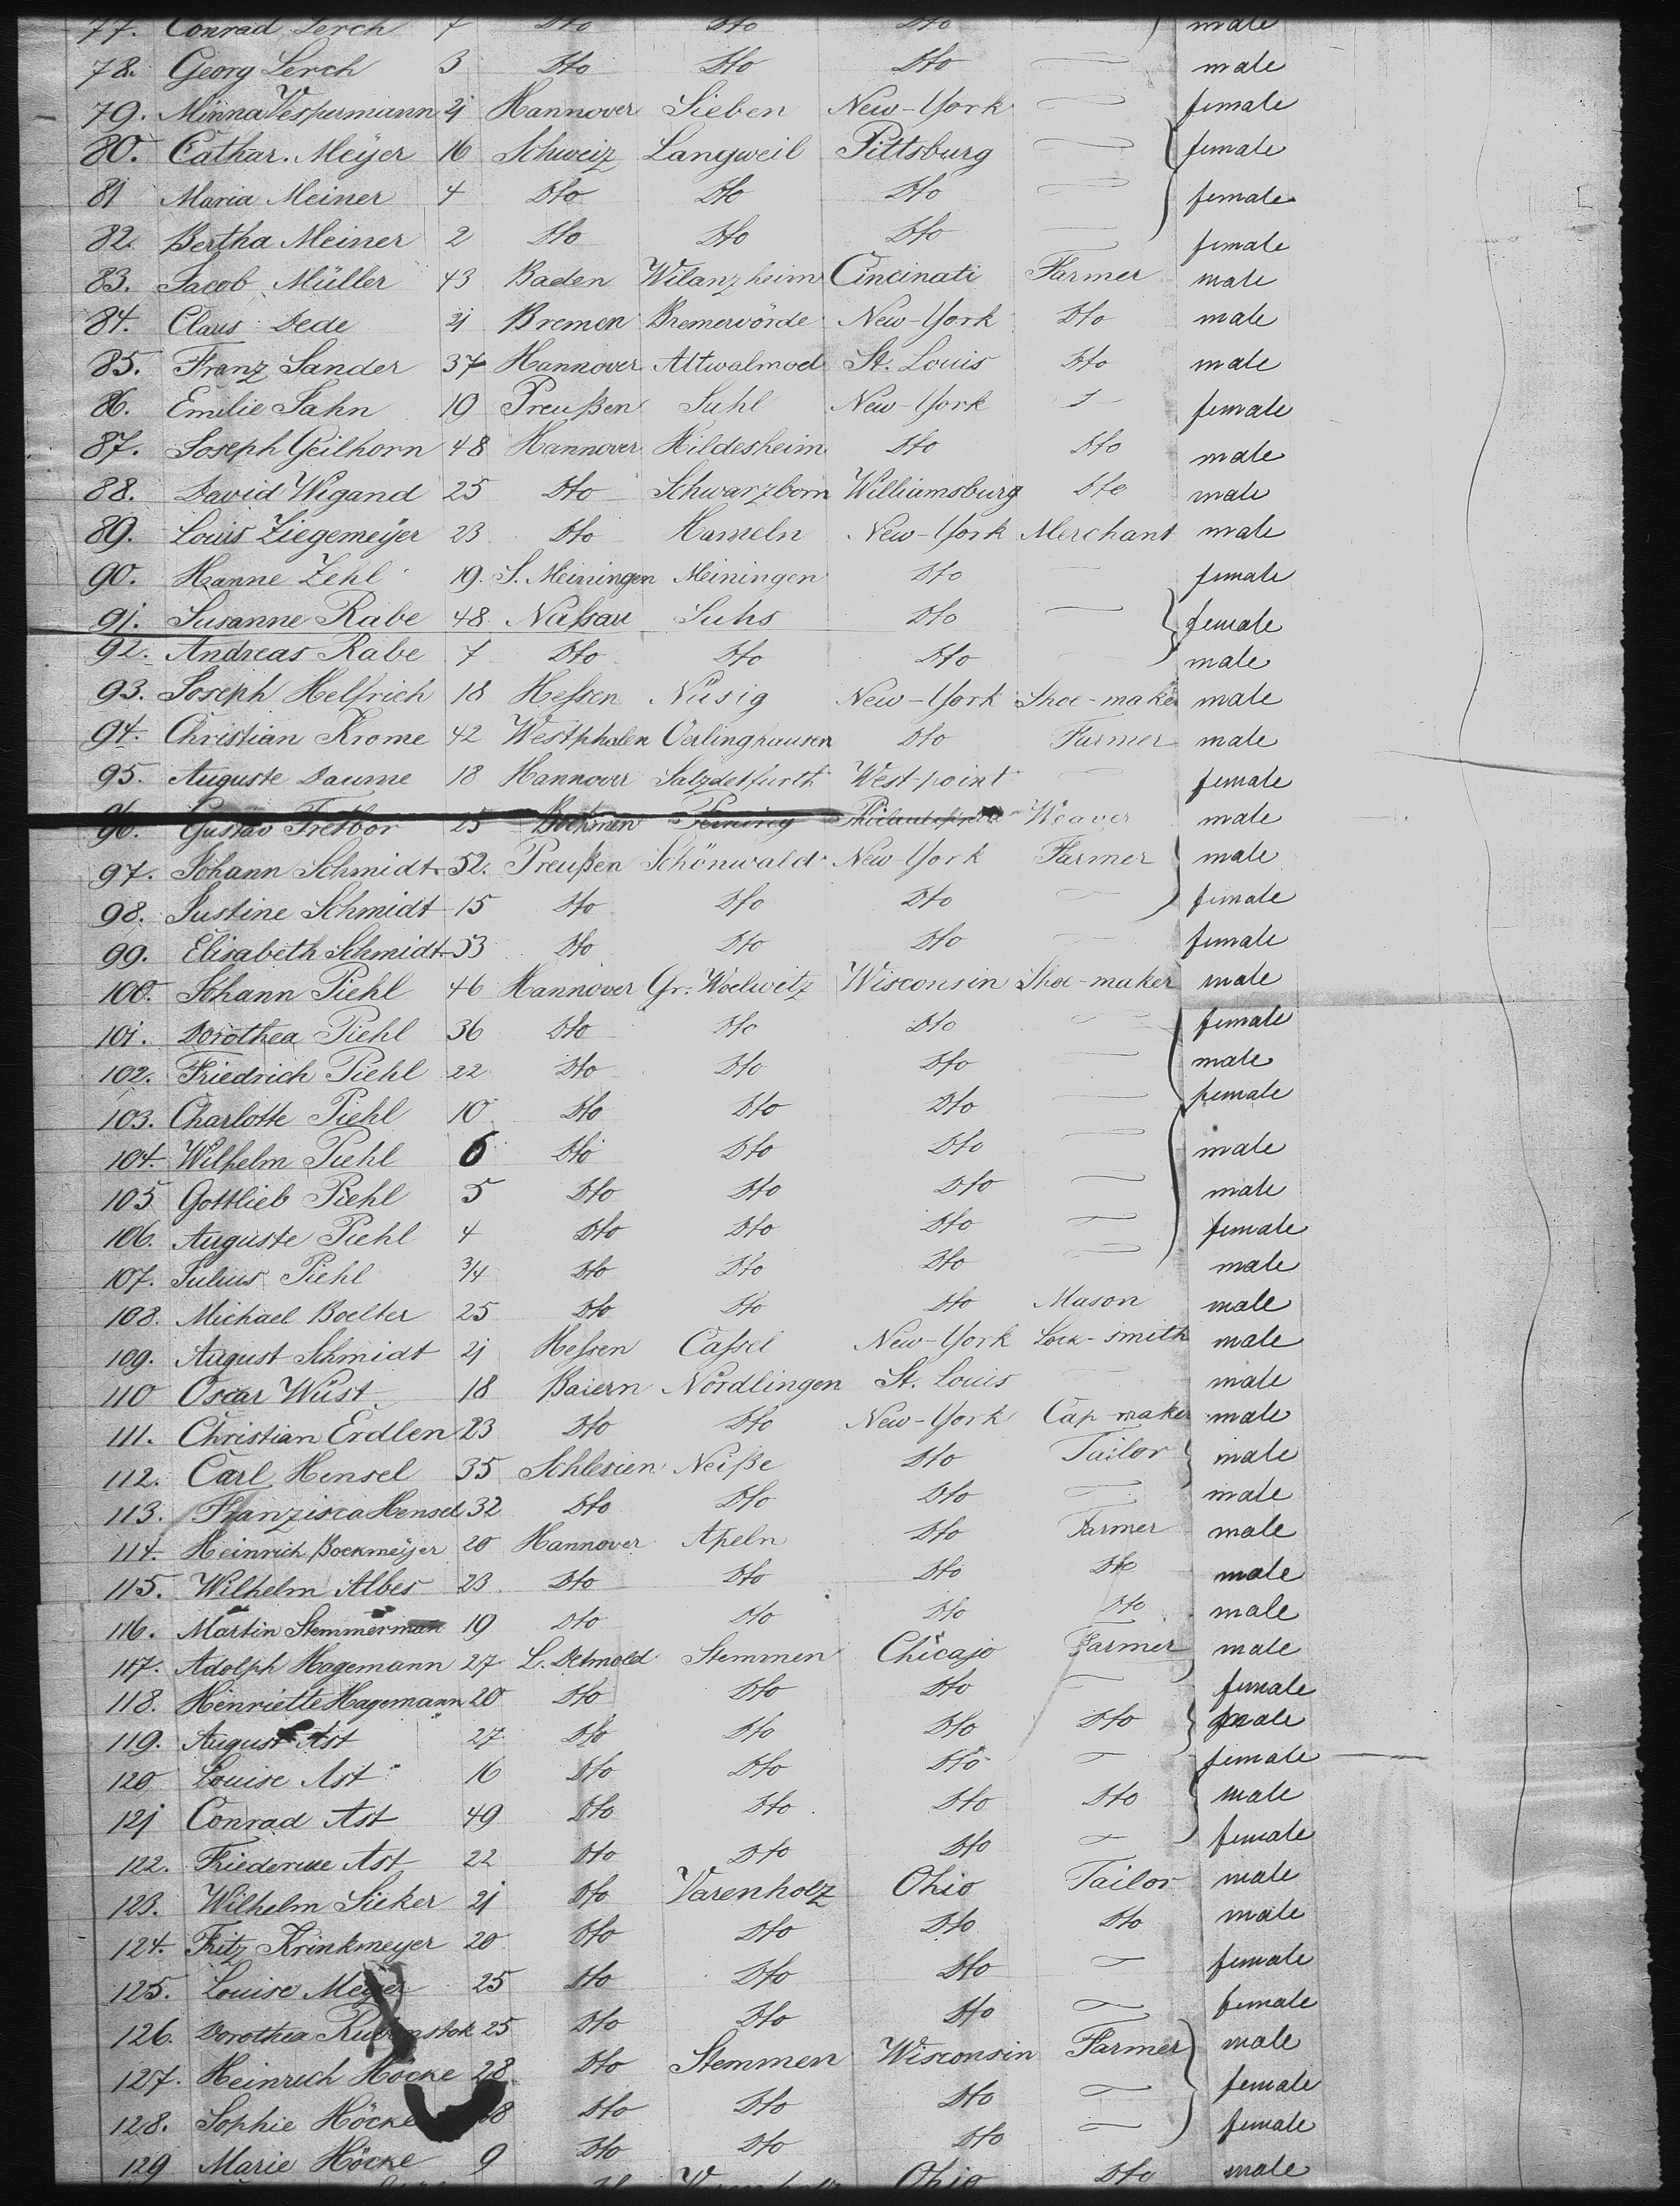 77. Conrad Lerch 7 Dto Dto Dto male
78. Georg Lerch 3 Dto Dto Dto — male
79. Minna Vespermann 21 Hannover Sieben New-York — female
80. Cathar. Meÿer 16 Schweiz Langweil Pittsburg — female
81 Maria Meiner 4 Dto Dto Dto — female
82. Bertha Meiner 2 Dto Dto Dto — female
83. Jacob Müller 43 Baden Wilanzheim Cincinati Farmer male
84. Claus Dede 21 Bremen Bremervörde New-York Dto male
85. Franz Sander 37 Hannover Altwalmod St. Louis Dto male
86. Emilie Jahn 19 Preußen Suhl New-York — female
87. Joseph Geilhorn 48 Hannover Hildesheim Dto Dto male
88. David Wigand 25 Dto Schwarzborn Williamsburg Dto male
89. Louis Ziegemeÿer 23 Dto Hameln New-York Merchant male
90. Hanne Zehl 19. S. Meiningen Meiningen Dto — female
91. Susanne Rabe 48 Naßau Suhs Dto — female
92. Andreas Rabe 7 Dto Dto Dto — male
93. Joseph Helfrich 18 Heßen Nüsig New-York Shoe-maker male
94. Christian Krome 42 Westphalen Oerlinghausen Dto Farmer male
95. Auguste Daume 18 Hannover Salzdetfurth West-point — female
96. Gustav Fretbor 25 Weaver male
97. Johann Schmidt 52. Preußen Schönwald New-York Farmer male
98. Justine Schmidt 15 Dto Dto Dto — female
99. Elisabeth Schmidt 53 Dto Dto Dto — female
100. Johann Piehl 46 Hannover Gr. Woelwitz Wisconsin Shoe-maker male
101. Dorothea Piehl 36 Dto Dto Dto — female
102. Friedrich Piehl 22 Dto Dto Dto — male
103. Charlotte Piehl 10 Dto Dto Dto — female
104. Wilhelm Piehl 6 Dto Dto Dto — male
105 Gottlieb Piehl 5 Dto Dto Dto — male
106. Auguste Piehl 4 Dto Dto Dto — female
107. Julius Piehl 3/4 Dto Dto Dto — male
108. Michael Boelter 25 Dto Dto Dto Mason male
109. August Schmidt 21 Heßen Caßel New-York Lock-smith male
110 Oscar Wüst 18 Baiern Nördlingen St. Louis — male
111. Christian Erdlen 23 Dto Dto New-York Cap-maker male
112. Carl Hensel 35 Schlesien Neiße Dto Tailor male
113. Franzisca Hensel 32 Dto Dto Dto — male
114. Heinrich Bockmeÿer 20 Hannover Apeln Dto Farmer male
115. Wilhelm Albes 23 Dto Dto Dto Dto male
116. Martin Stemmerman 19 Dto Dto Dto Dto male
117. Adolph Hagemann 27 L. Detmold Stemmen Chicajo Farmer male
118. Henriette Hagemann 20 Dto Dto Dto — female
119. August Ast 27 Dto Dto Dto Dto male
120 Louise Ast 16 Dto Dto Dto — female
121 Conrad Ast 49 Dto Dto Dto Dto male
122. Friederike Ast 22 Dto Dto Dto — female
123. Wilhelm Sieker 21 Dto Varenholz Ohio Tailor male
124. Fritz Krinkmeyer 20 Dto Dto Dto Dto male
125. Louise Meÿer 25 Dto Dto Dto — female
126. Dorothea 25 Dto Dto Dto — female
127. Heinrich Höcke 28 Dto Stemmen Wisconsin Farmer male
128. Sophie Höcke Dto Dto Dto — female
129 Marie Höcke 9 Dto Dto Dto — female
Ohio Dto male